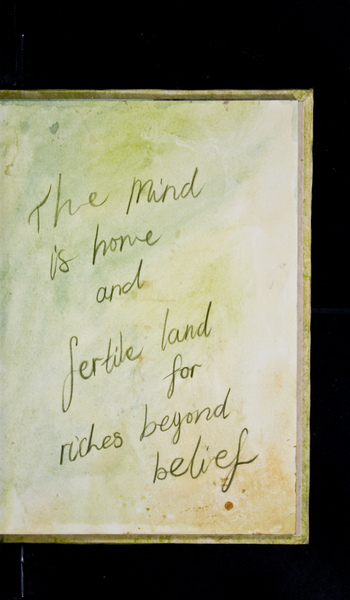 The Mind
is home
and
fertile land
for
riches beyond
belief